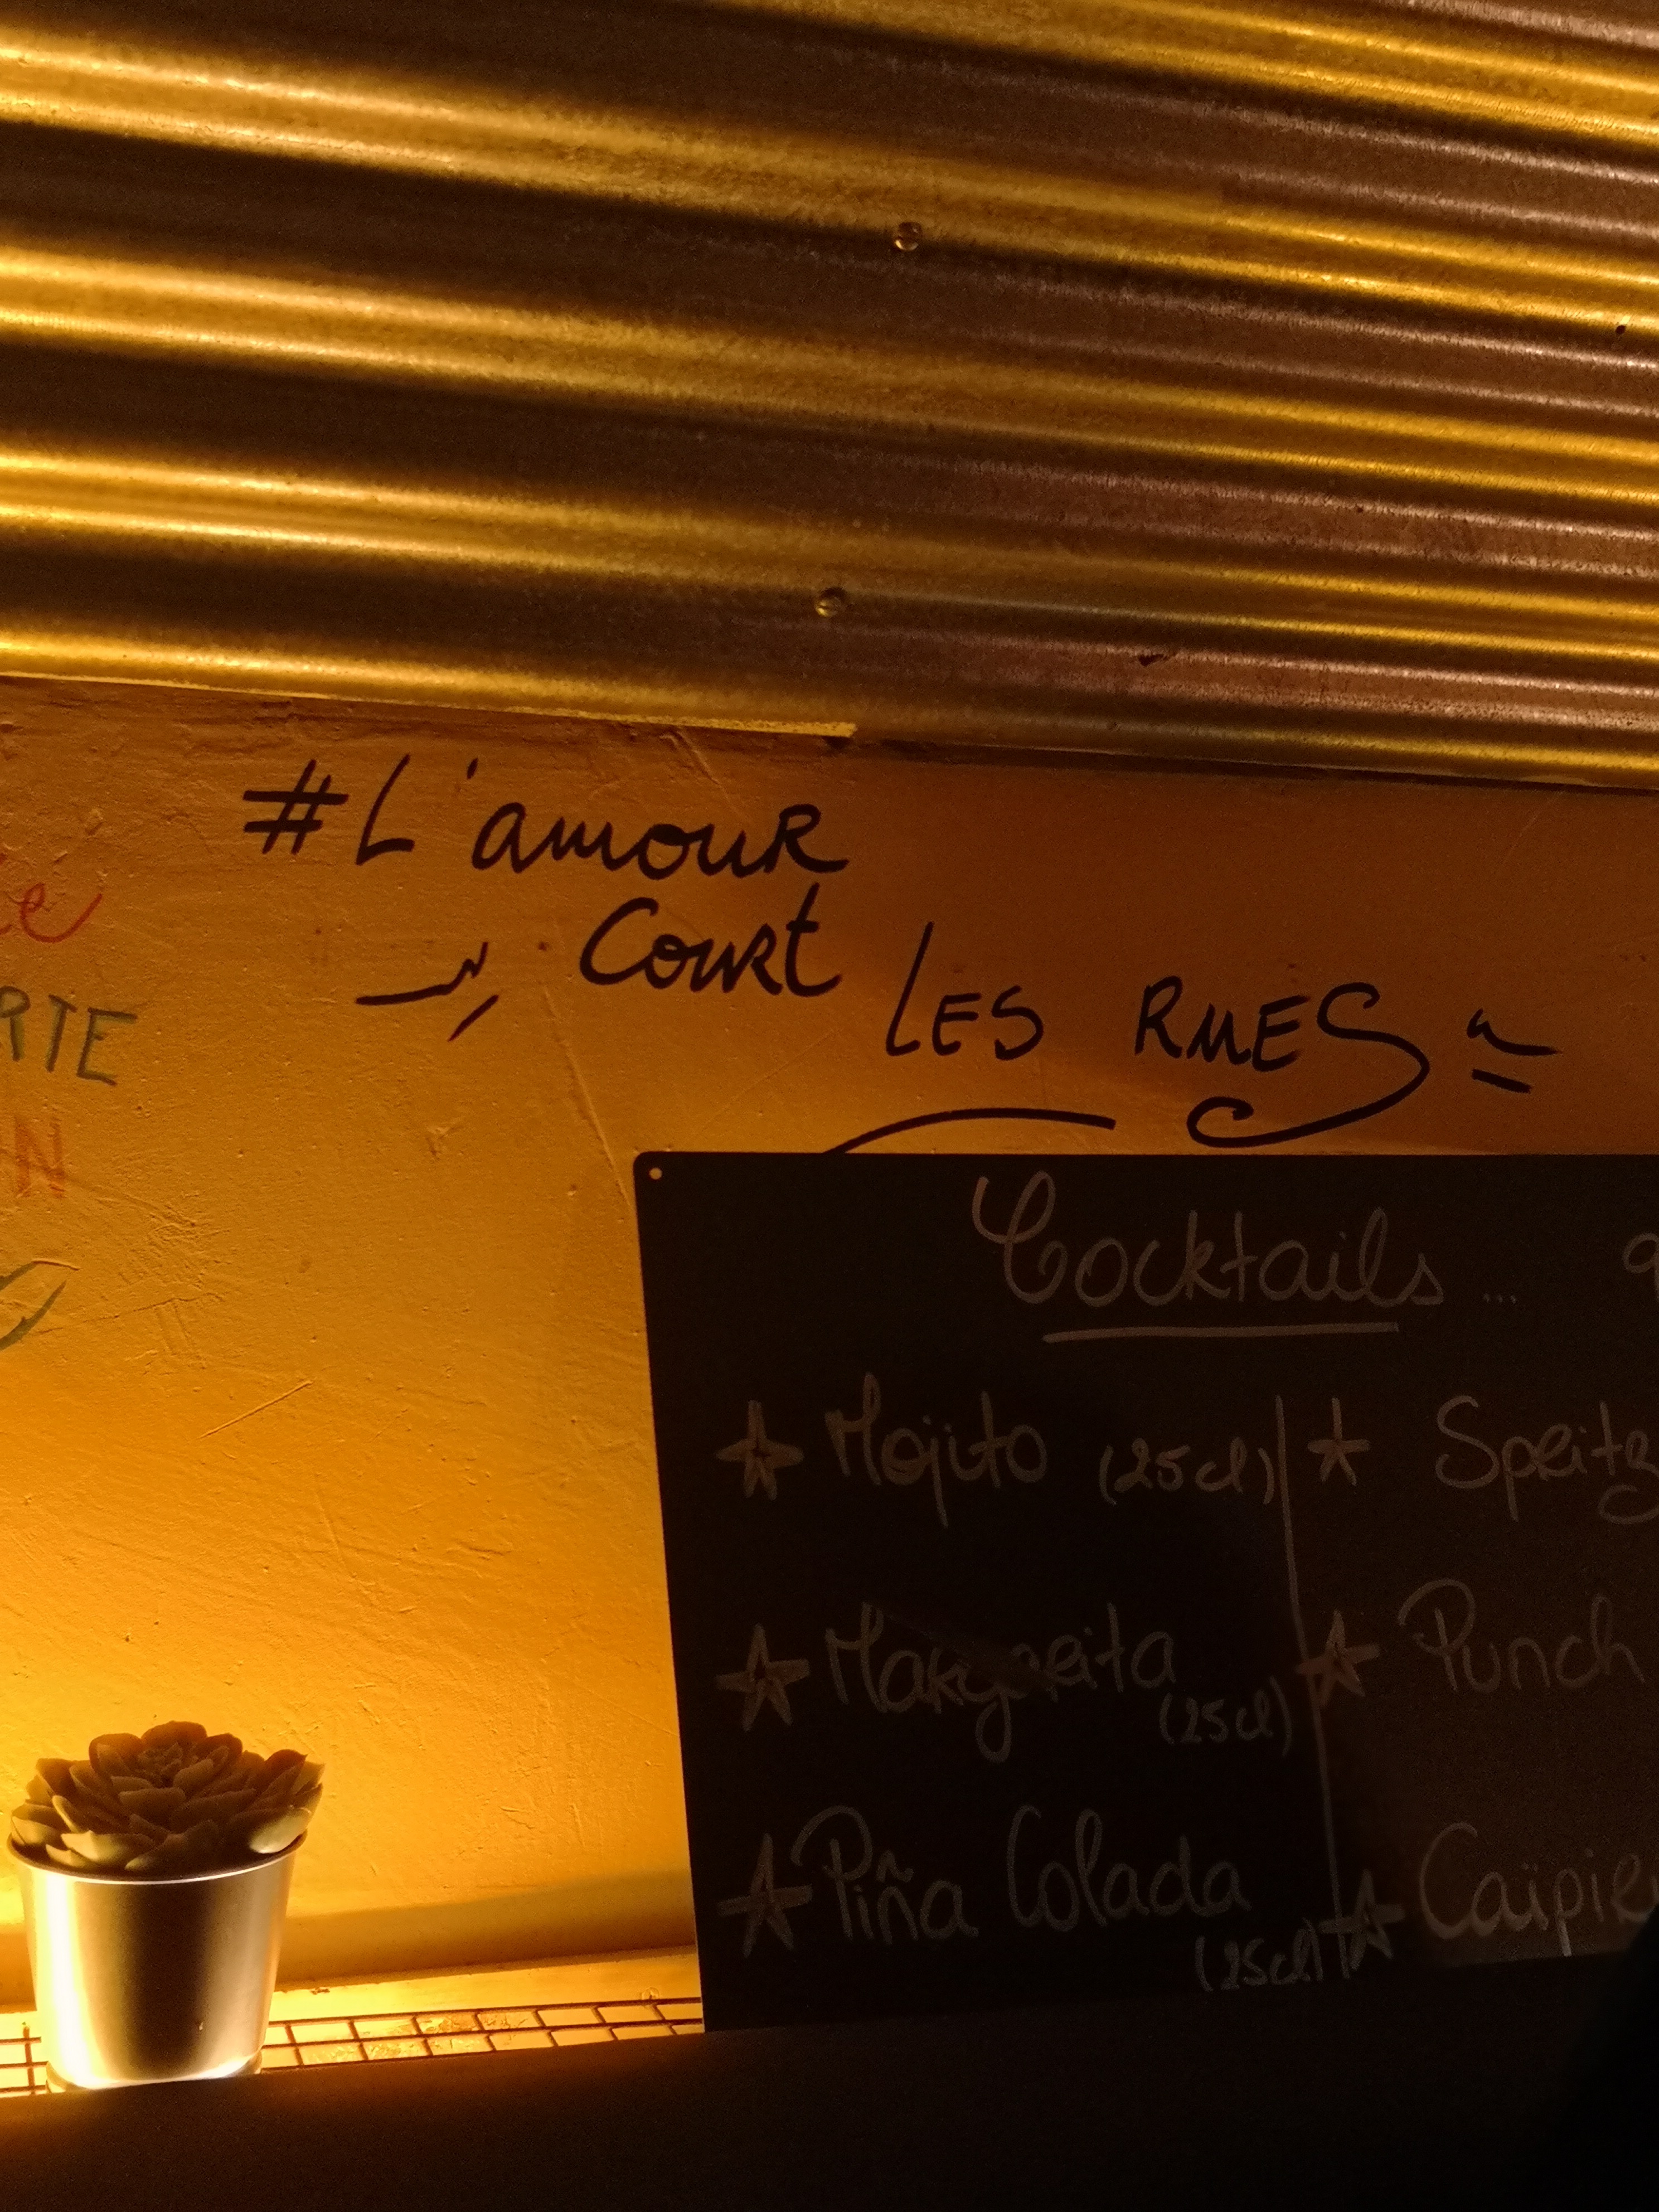 #L'amour
Court
LES RUES
RTE
N
Cocktails ...
Mojito (25cl)
Spritz
Margarita
(25cl)
Punch
Piña Colada
(25cl)
Caïpir